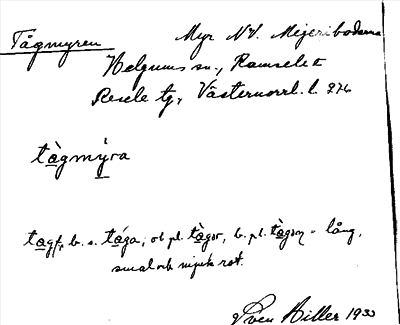 Tågmyren Myr NV. Mejeribodarna
Helgums sn., Ramsele o
Resele tg, Västernorrl. l. 276
tàgmỳra
tagf, b. s. tága, ob pl. tàgər, b. pl. tàgən = lång,
smal och mjuk rot.
Sven Hiller 1933